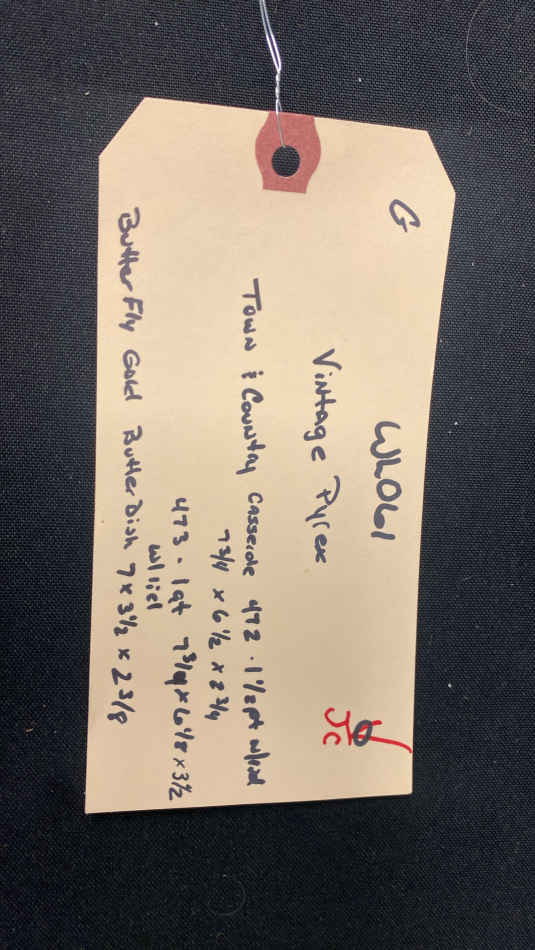 G
WL061
Vintage Pyrex
Town & Country Casserole 472 . 1 1/2 pt w/lid
7 3/4 x 6 1/2 x 2 3/4
473 . 1 qt 7 3/4 x 6 1/8 x 3 1/2
w/lid
Butterfly Gold Butter Dish 7 x 3 1/2 x 2 3/8
JC